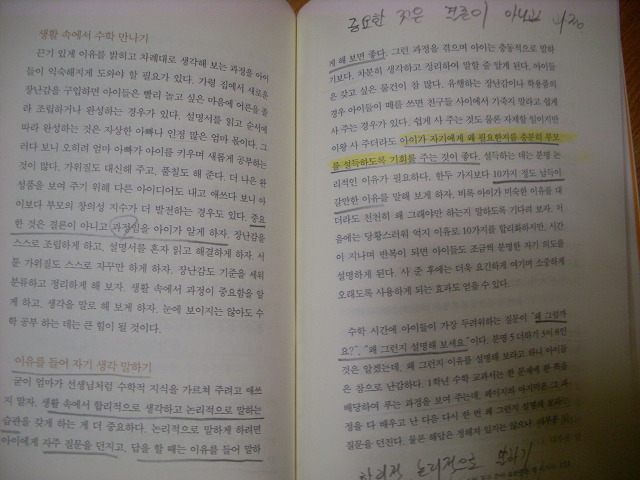 생활 속에서 수학 만나기
끈기 있게 이유를 밝히고 차례대로 생각해 보는 과정을 아이
들이 익숙해지게 도와야 할 필요가 있다. 가령 집에서 새로운
장난감을 구입하면 아이들은 빨리 놀고 싶은 마음에 어른을 졸
라 조립하거나 완성하는 경우가 있다. 설명서를 읽고 순서에
따라 완성하는 것은 자상한 아빠나 인정 많은 엄마 몫이다. 그
러다 보니 오히려 엄마 아빠가 아이를 키우며 새롭게 공부하는
것이 많다. 가위질도 대신해 주고, 풀칠도 해 준다. 더 나은 완
성품을 보여 주기 위해 다른 아이디어도 내고 애쓰다 보니 아
이보다 부모의 창의성 지수가 더 발전하는 경우도 있다. 중요
한 것은 결론이 아니고 과정임을 아이가 알게 하자. 장난감을
스스로 조립하게 하고, 설명서를 혼자 읽고 해결하게 하자. 서
툰 가위질도 스스로 자꾸만 하게 하자. 장난감도 기준을 세워
분류하고 정리하게 해 보자. 생활 속에서 과정이 중요함을 알
게 하고, 생각을 말로 해 보게 하자. 눈에 보이지는 않아도 수
학 공부 하는 데는 큰 힘이 될 것이다.
이유를 들어 자기 생각 말하기
굳이 엄마가 선생님처럼 수학적 지식을 가르쳐 주려고 애쓰
지 말자. 생활 속에서 합리적으로 생각하고 논리적으로 말하는
습관을 갖게 하는 게 더 중요하다. 논리적으로 말하게 하려면
아이에게 자주 질문을 던지고, 답을 할 때는 이유를 들어 말하
중요한 것은 결론이 아니고
게 해 보면 좋다. 그런 과정을 겪으며 아이는 충동적으로 말하
기보다, 차분히 생각하고 정리하여 말할 줄 알게 된다. 아이들
은 갖고 싶은 물건이 참 많다. 유행하는 장난감이나 학용품의
경우 아이들이 떼를 쓰면 친구들 사이에서 기죽지 말라고 쉽게
사 주는 경우가 있다. 쉽게 사 주는 것도 물론 자제할 일이지만
이왕 사 주더라도 아이가 자기에게 왜 필요한지를 충분히 부모
를 설득하도록 기회를 주는 것이 좋다. 설득하는 데는 분명 논
리적인 이유가 필요하다. 한두 가지보다 10가지 정도 남들이
갈만한 이유를 말해 보게 하자. 비록 아이가 미숙한 이유를 대
더라도 천천히 왜 그래야만 하는지 말하도록 기다려 보자. 처
음에는 당황스러워 억지 이유로 10가지를 합리화하지만, 시간
이 지나며 반복이 되면 아이들도 조금씩 분명한 자기 의도를
설명하게 된다. 사 준 후에는 더욱 요긴하게 여기며 소중하게
오래도록 사용하게 되는 효과도 얻을 수 있다.
수학 시간에 아이들이 가장 두려워하는 질문이 "왜 그럴까
요?", "왜 그런지 설명해 보세요"이다. 분명 5 더하기 3이 8인
것은 알겠는데, 왜 그런지 이유를 설명해 보라고 하니 아이들
은 참으로 난감하다. 1학년 수학 교과서는 한 문제에 한 쪽을
배당하여 푸는 과정을 보여 주는데, 페이지의 마지막은 그 과
정을 다 배우고 난 다음 다시 한 번 왜 그런지 설명해 보라는
질문을 던진다. 물론 해답은 정해져 있지는 않으나
합리적 논리적으로 말하기